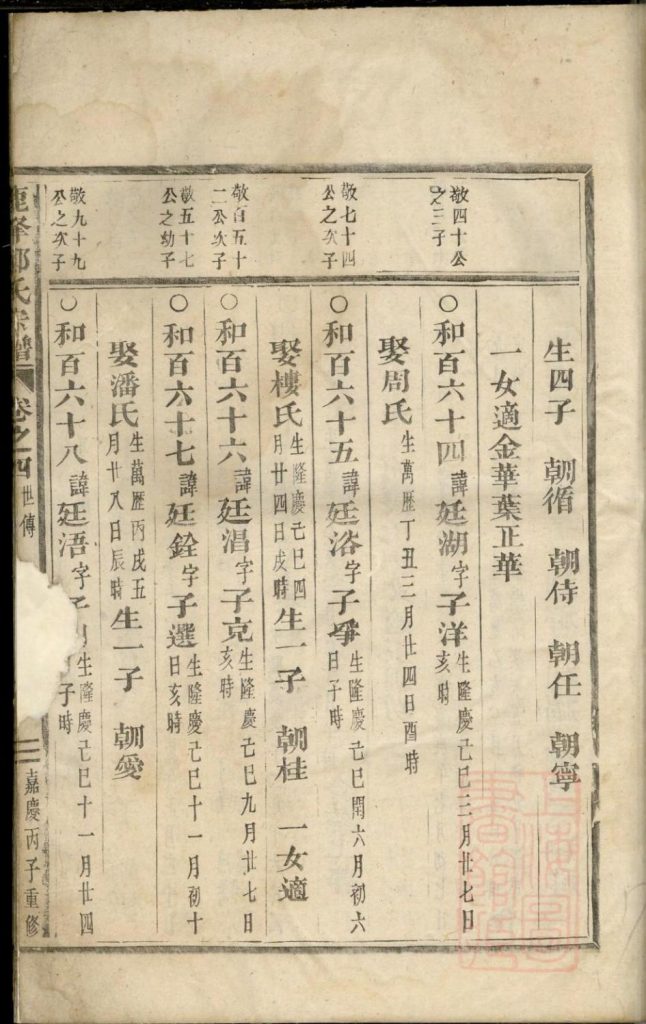 生四子 朝循 朝侍 朝任 朝寧
一女適金華葉正華
敬四十公
之三子
○和百六十四諱廷湖字子洋生隆慶己巳三月廿七日
亥時
娶周氏生萬歷丁丑三月廿四日酉時
敬七十四
公之次子
○和百六十五諱廷洛字子爭生隆慶己巳閏六月初六
日子時
娶樓氏生隆慶己巳四
月廿四日戌時生一子 朝桂 一女適
敬百五十
二公次子
○和百六十六諱廷淐字子克生隆慶己巳九月廿七日
亥時
敬五十七
公之幼子
○和百六十七諱廷銓字子選生隆慶己巳十一月初十
日亥時
娶潘氏生萬歷丙戌五
月廿八日辰時生一子 朝愛
敬九十九
公之次子
○和百六十八諱廷浯字子 生隆慶己巳十一月廿四
日子時
鹿峯郭氏宗譜 卷之四 世傳 三 嘉慶丙子重修